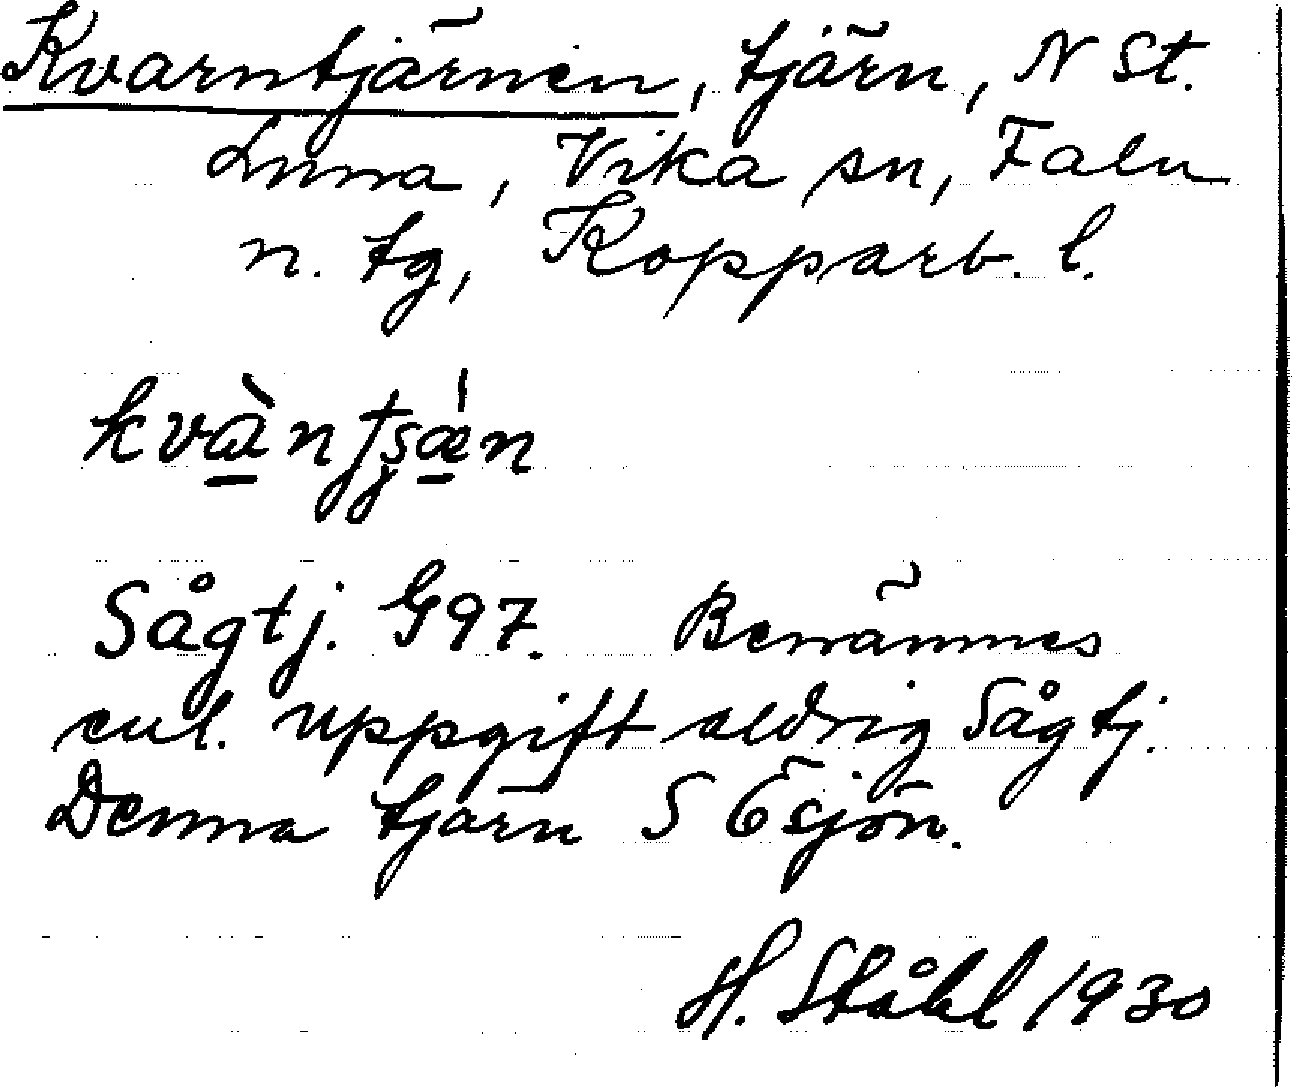 Kvarntjärnen, tjärn, N St.
Lunna, Vika sn, Falu
n. tg, Kopparb. l.
Sågtj. G97. Benämnes
enl. uppgift aldrig Sågtj.
Denna tjärn S Ösjön.
H. Ståhl 1930